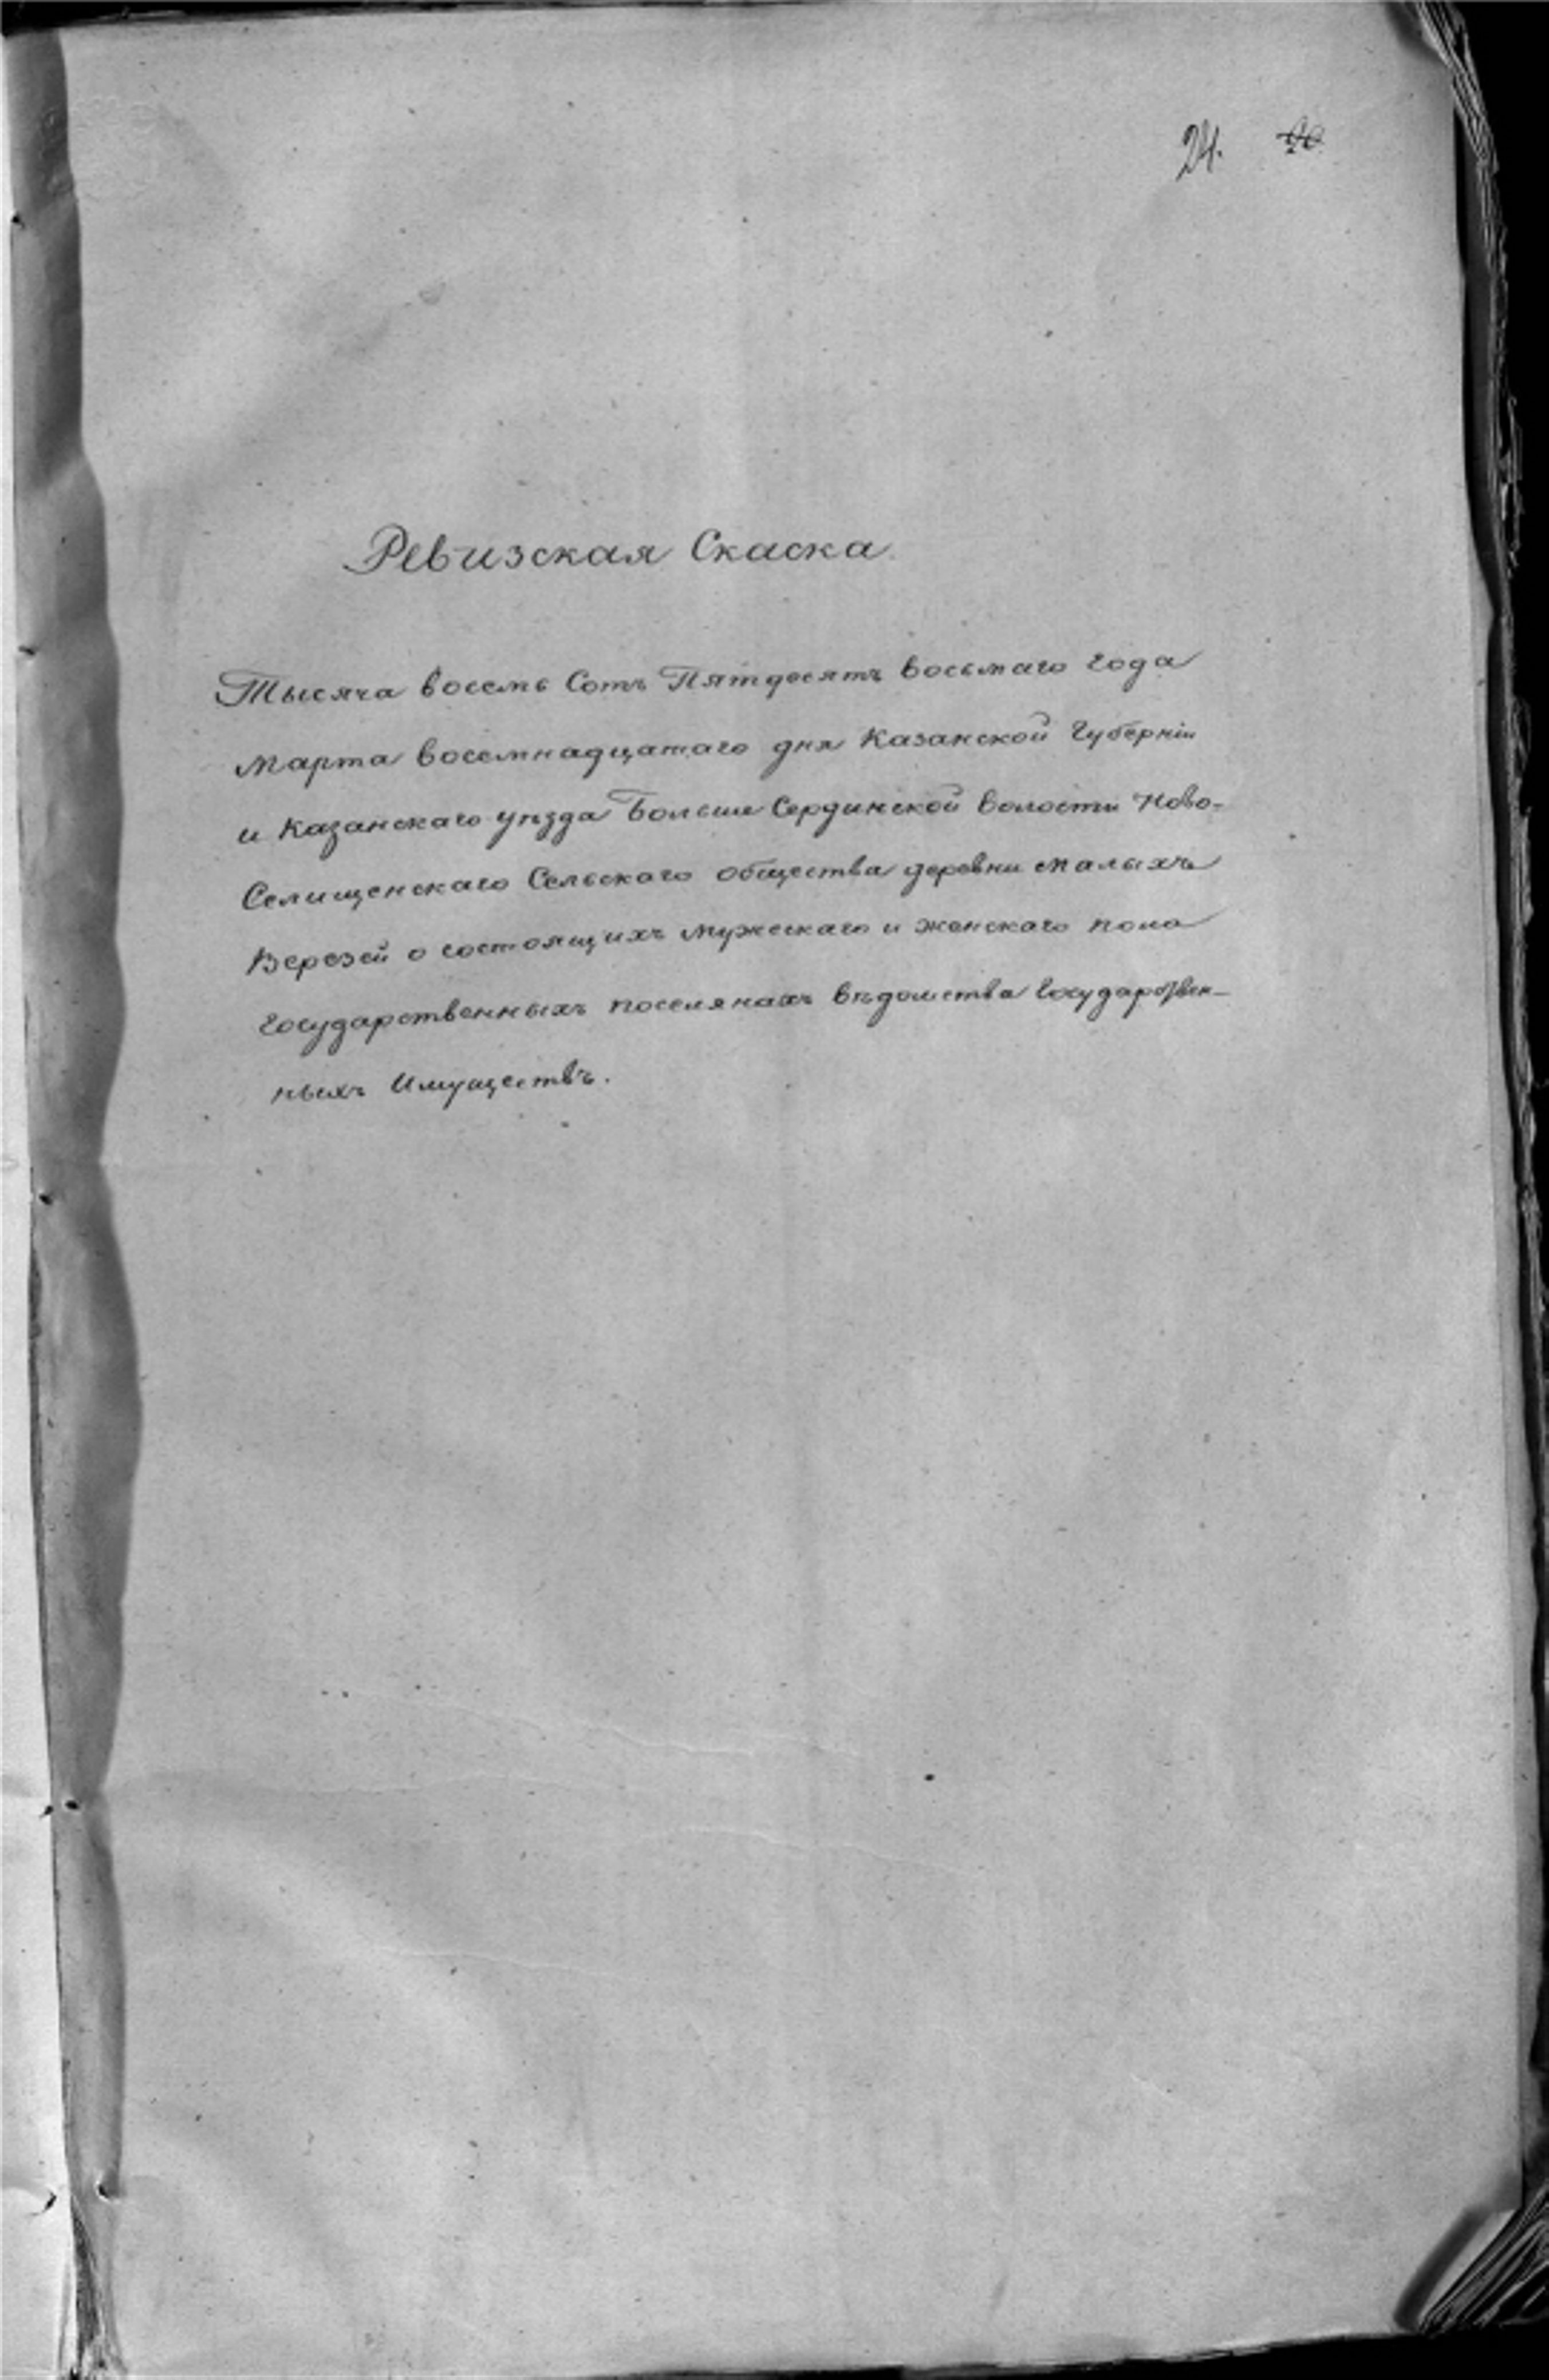 24.
Ревизская Скаска
Тысяча восемь Сотъ Пятдесятъ восьмаго года
Марта восемнадцатаго дня Казанской Губерніи
и Казанскаго уѣзда Больше Сердинской волости Ново-
Селищенскаго Сельскаго общества деревни Малыхъ
Верезей о состоящихъ мужескаго и женскаго пола
государственныхъ поселянахъ вѣдомства Государствен-
ныхъ Имуществъ.